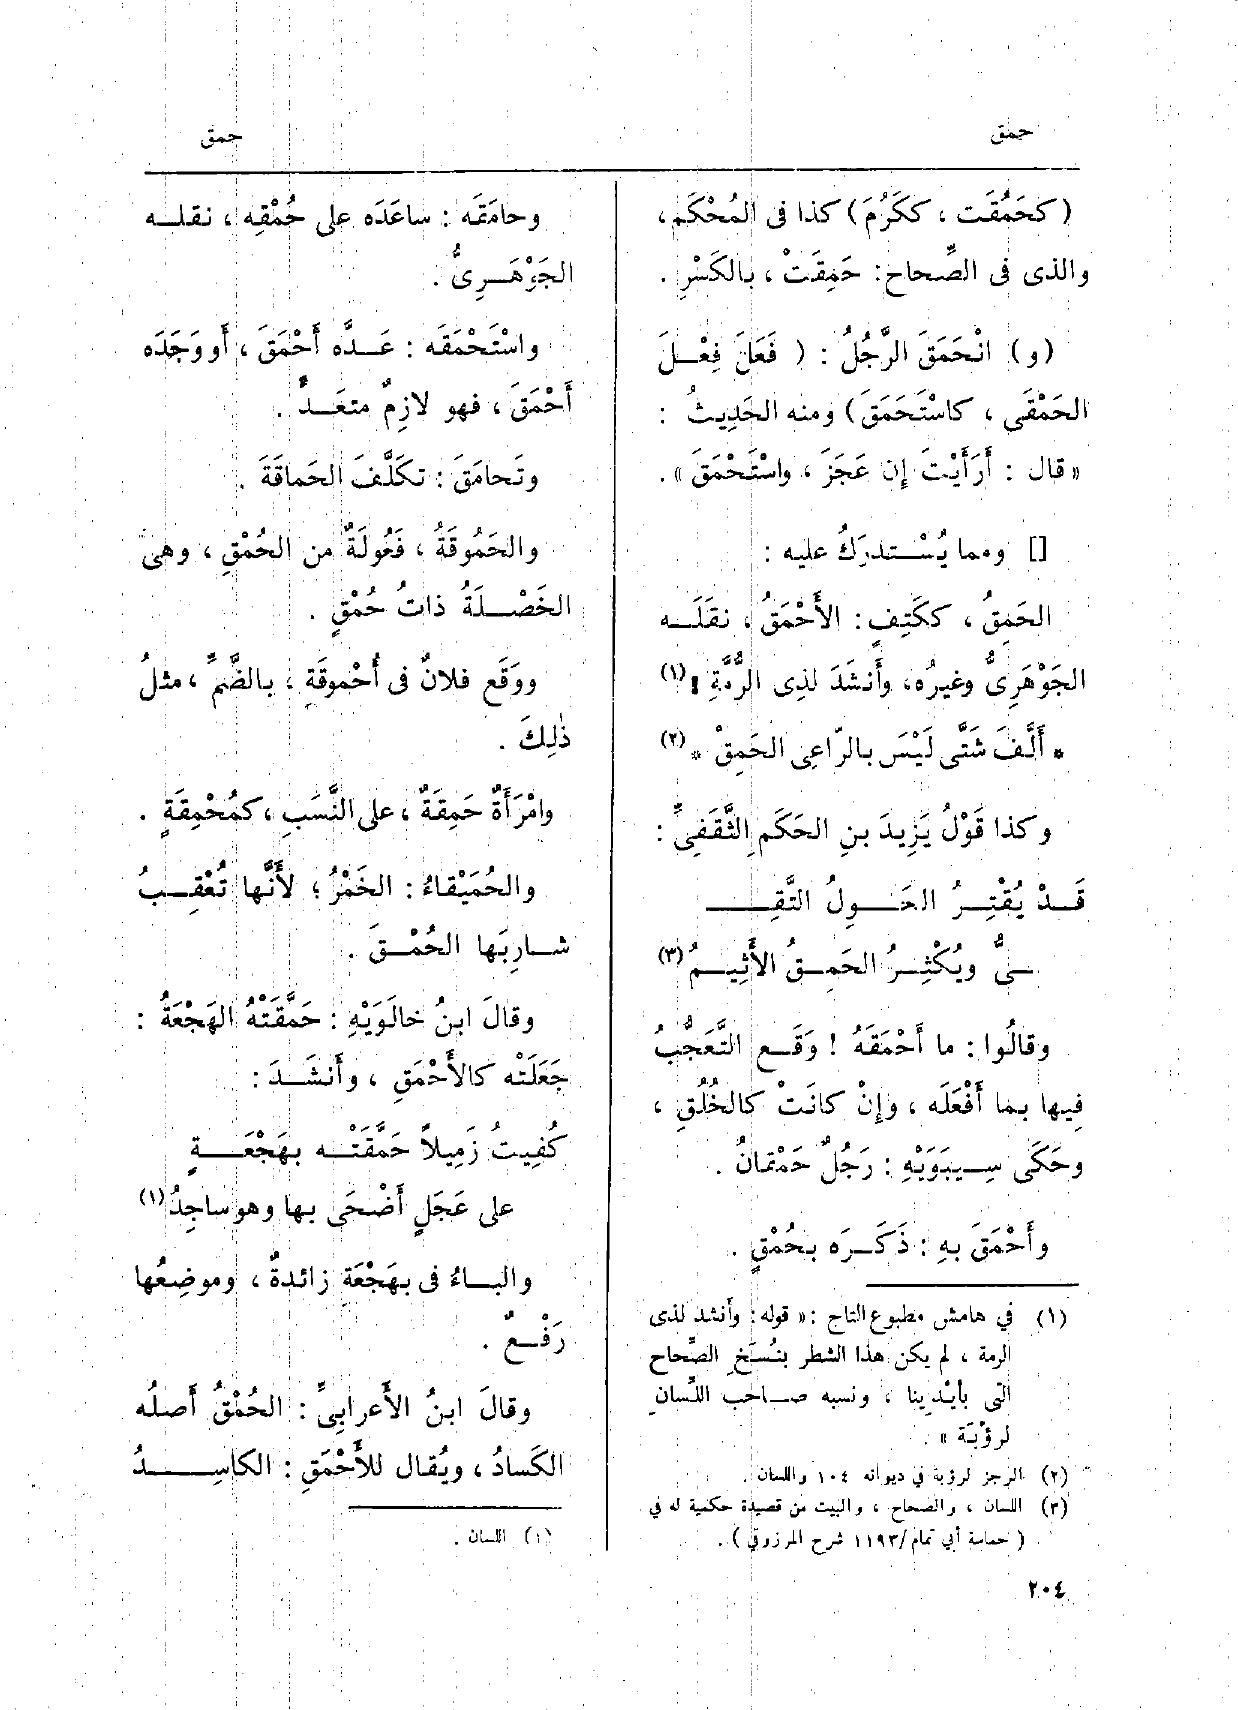 حمق
حمق
(كحَمُقَت ، ككَرُمَ) كذا فى المُحْكَم،
والذى فى الصِّحاح: حَمِقَتْ ، بالكَسْرِ .
(و) انْحَمَقَ الرَّجُلُ : ( فَعَلَ فِعْلَ
الحَمْقَى ، كاسْتَحْمَقَ) ومنه الحَدِيثُ :
« قال : أَرَأَيْتَ إِن عَجَزَ ، واسْتَحْمَقَ » .
[] ومما يُسْتدرَكُ عليه :
الحَمِقُ ، ككَتِفٍ: الأَحْمَقُ ، نقَلَه
الجَوْهَرِىُّ وغيرُه، وأَنشَدَ لذِى الرُّمَّةِ : (١)
* أَلَّفَ شَتَّى لَيْسَ بالرّاعِى الحَمِقْ * (٢)
وكذا قَوْلُ يَزِيدَ بنِ الحَكَمِ الثَّقَفِىِّ :
قَدْ يُقْتِرُ الحَوِلُ التَّقِـ
ـىُّ ويُكْثِرُ الحَمِقُ الأَثِيمُ (٣)
وقالُوا : ما أَحْمَقَهُ ! وَقَع التَّعَجُّبُ
فِيها بما أَفْعَلَه ، وإِنْ كانَتْ كالخُلُقِ ،
وحَكَى سِيبَوَيْهِ : رَجُلٌ حَمْقانُ .
وأَحْمَقَ بهِ : ذَكَرَه بحُمْقٍ .
(١) في هامش مطبوع التاج :« قوله: وأنشد لذى
الرمة ، لم يكن هذا الشطر بنُسَخِ الصِّحاح
التى بأيْدينا ، ونسبه صاحب اللِّسانِ
لرؤبَة » .
(٢) الرجز لرؤبة في ديوانه ١٠٤ واللسان .
(٣) اللسان ، والصحاح ، والبيت من قصيدة حكمية له في
( حماسة أبي تمام/١١٩٣ شرح المرزوقي ) .
٢٠٤
وحامَقَه : ساعَدَه على حُمْقِه ، نقله
الجَوْهَرِىُّ .
واسْتَحْمَقَه : عَدَّه أَحْمَقَ ، أو وَجَدَه
أَحْمَقَ ، فهو لازِمٌ متعَدٍّ .
وتَحامَقَ : تكَلَّفَ الحَماقَةَ .
والحَمُوقَةُ ، فَعُولَةٌ من الحُمْقِ ، وهى
الخَصْلَةُ ذاتُ حُمْقٍ .
ووَقَع فلانٌ فى أُحْموقَةٍ ، بالضَّمِّ ، مثلُ
ذٰلِكَ .
وامْرَأَةٌ حَمِقَةٌ ، على النَّسَبِ ، كمُحْمِقَةٍ .
والحُمَيْقاءُ : الخَمْرُ ؛ لأَنَّها تُعْقِبُ
شارِبَها الحُمْقَ .
وقالَ ابنُ خالَوَيْهِ : حَمَّقَتْهُ الهَجْعَةُ :
جَعَلَتْه كالأَحْمَقِ ، وأَنشَدَ :
كُفِيتُ زَمِيلاً حَمَّقَتْه بهَجْعَةٍ
على عَجَلٍ أَضْحَى بها وهو ساجِدُ (١)
والباءُ فى بهَجْعَةٍ زائدةٌ ، وموضِعُها
رَفْعٌ .
وقالَ ابنُ الأَعرابِىِّ : الحُمْقُ أَصلُه
الكَسادُ ، ويُقال للأَحْمَقِ : الكاسِدُ
(١) اللسان .